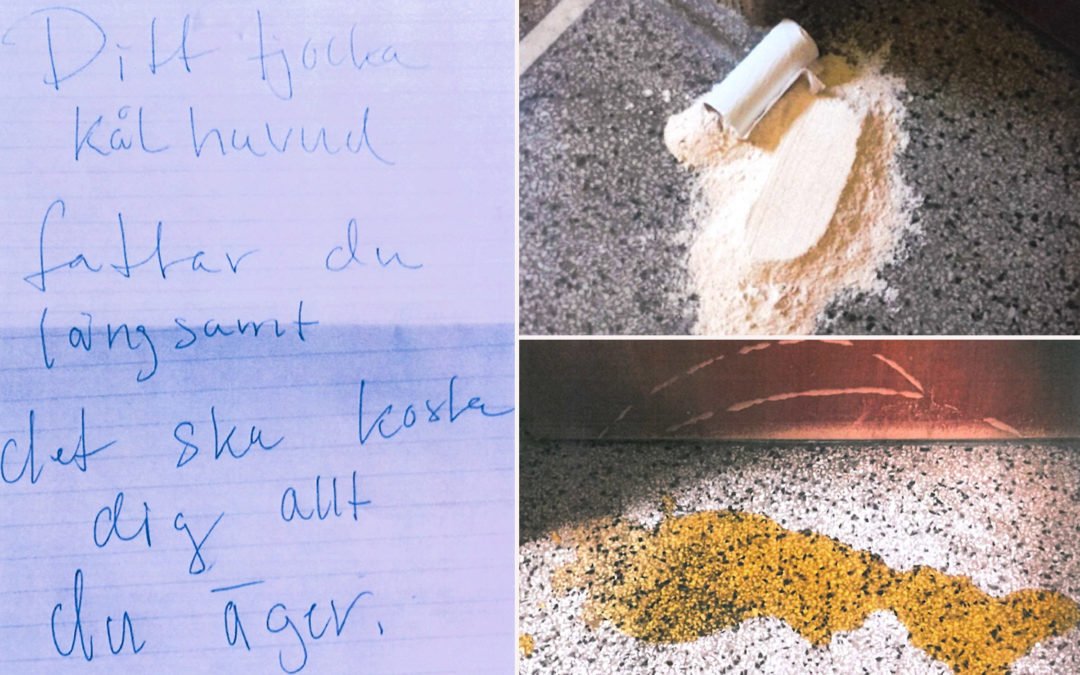 Ditt tjocka
kålhuvud
fattar du
långsamt
det ska kosta
dig allt
du äger.